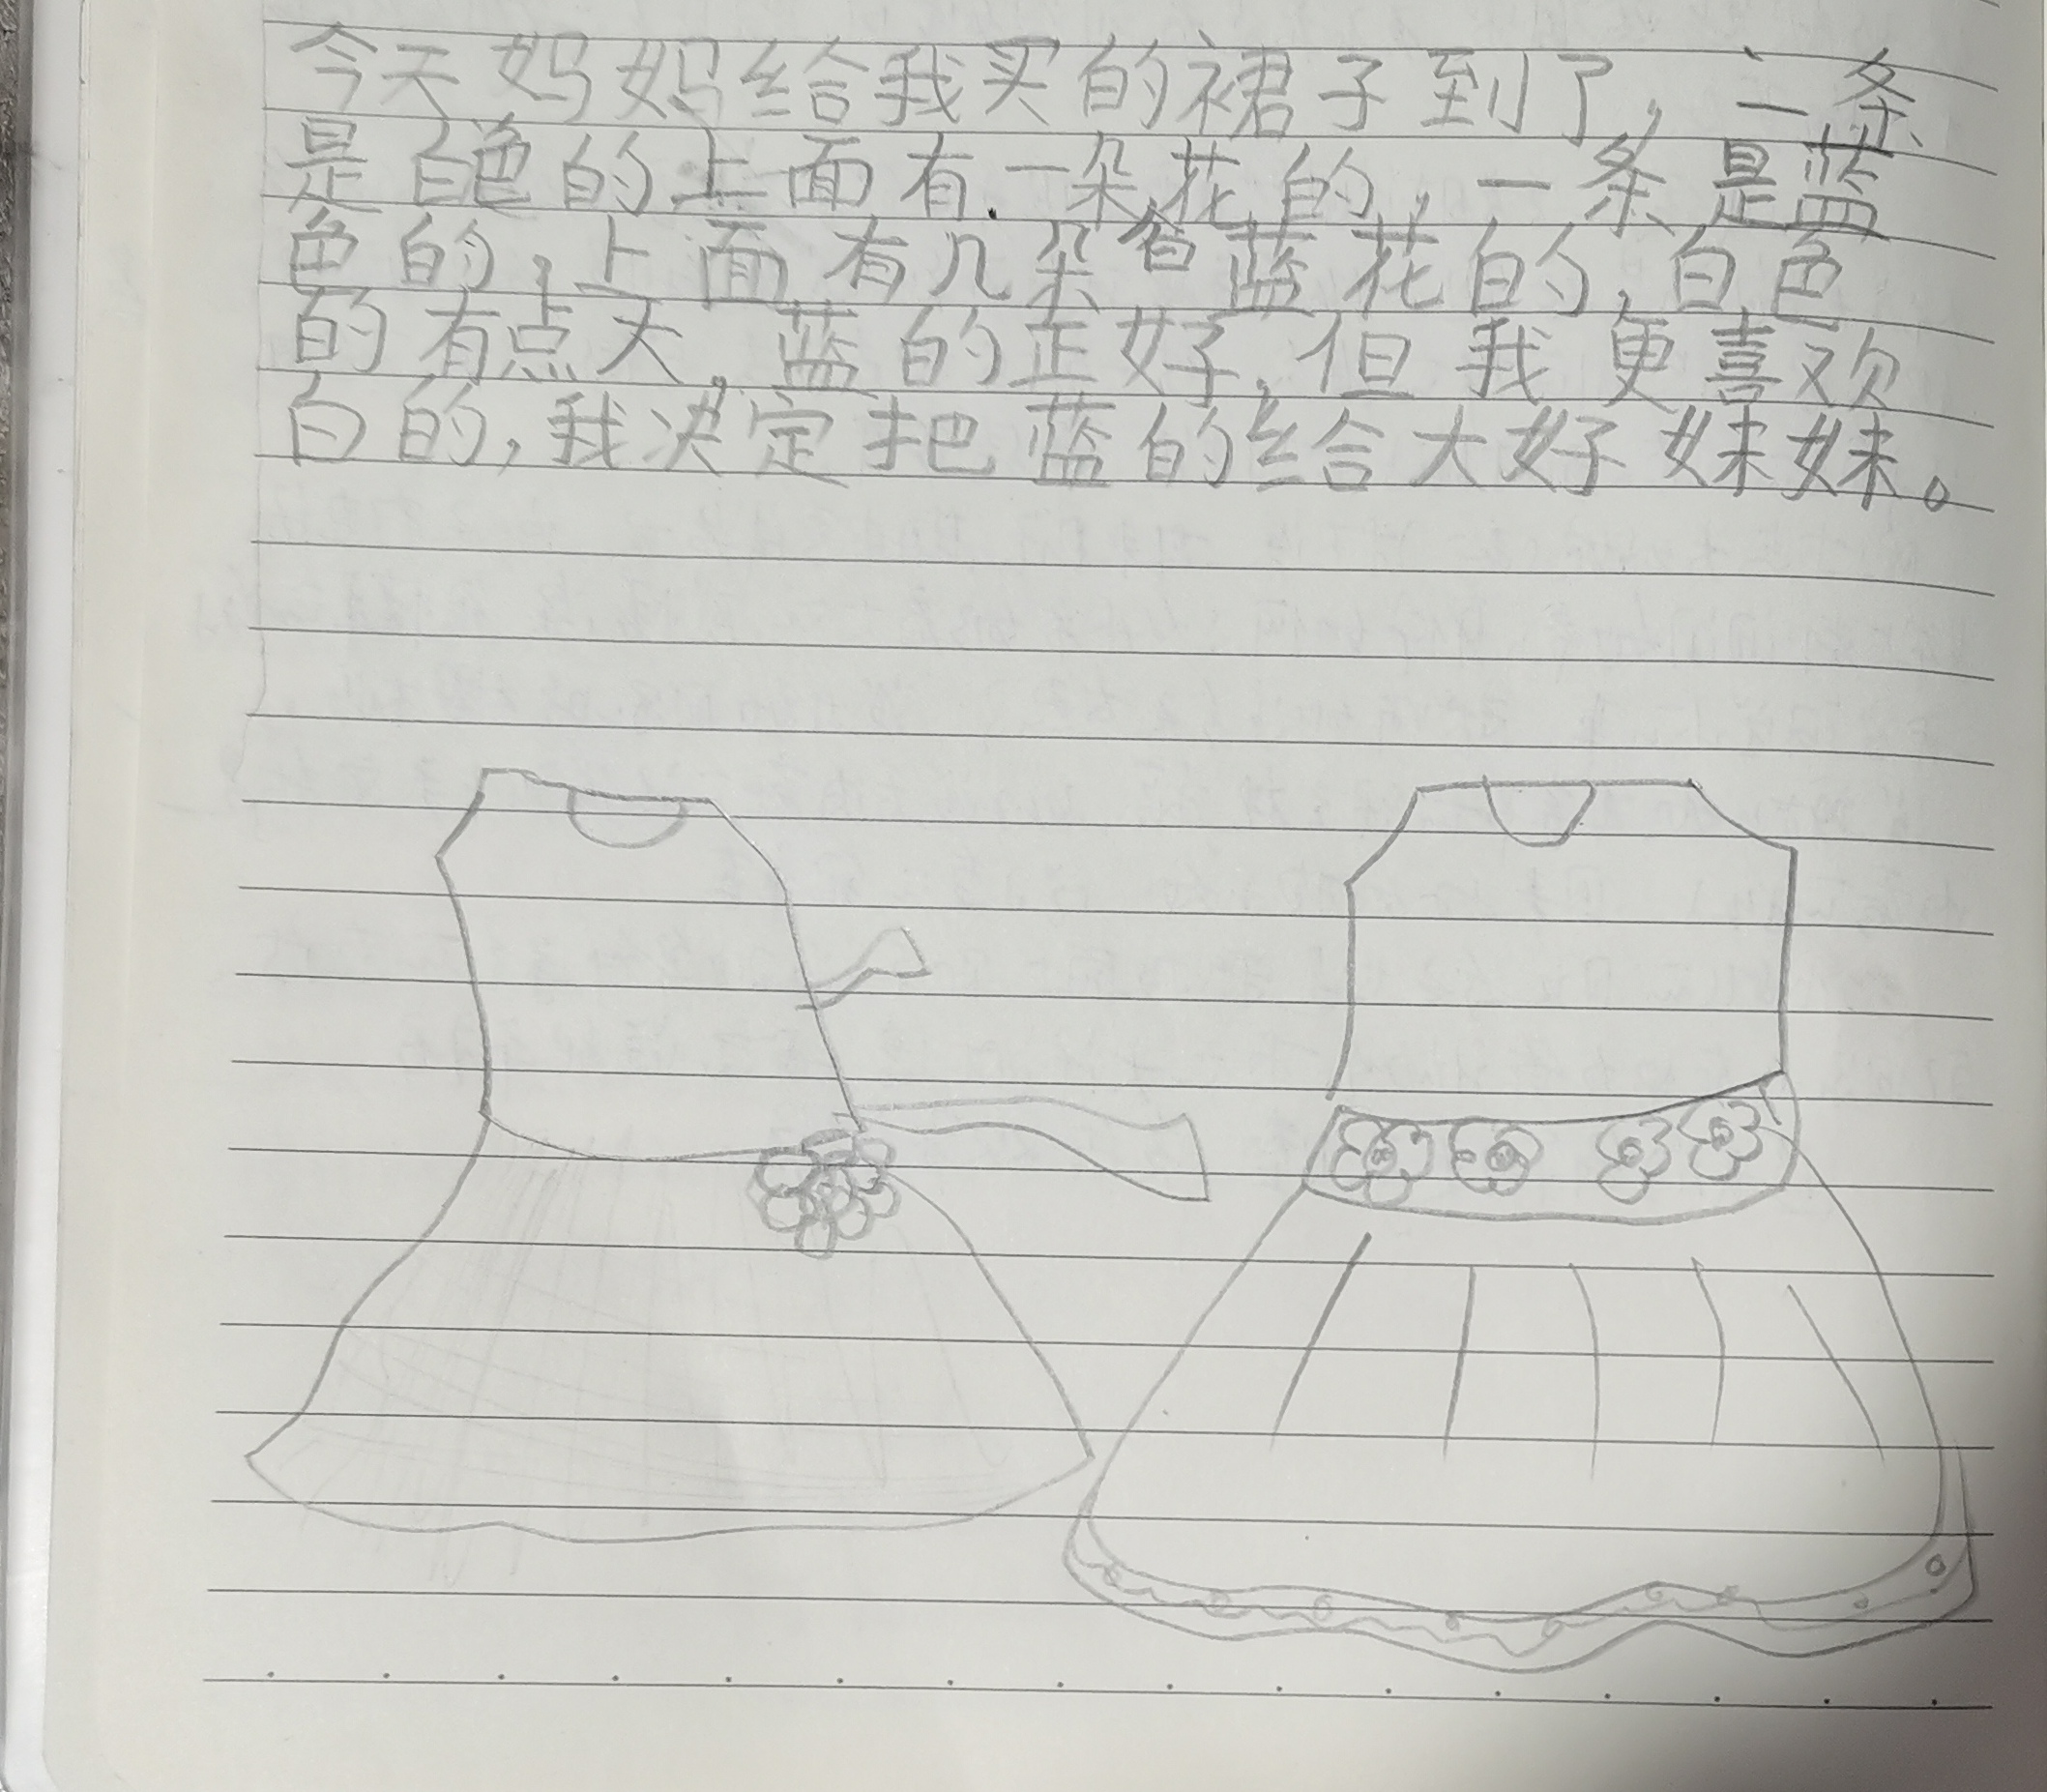 今天妈妈给我买的裙子到了，一条
是白色的上面有一朵花的，一条是蓝
色的，上面有几朵白蓝花的，白色
的有点大，蓝的正好，但我更喜欢
白的，我决定把蓝的给大好妹妹。